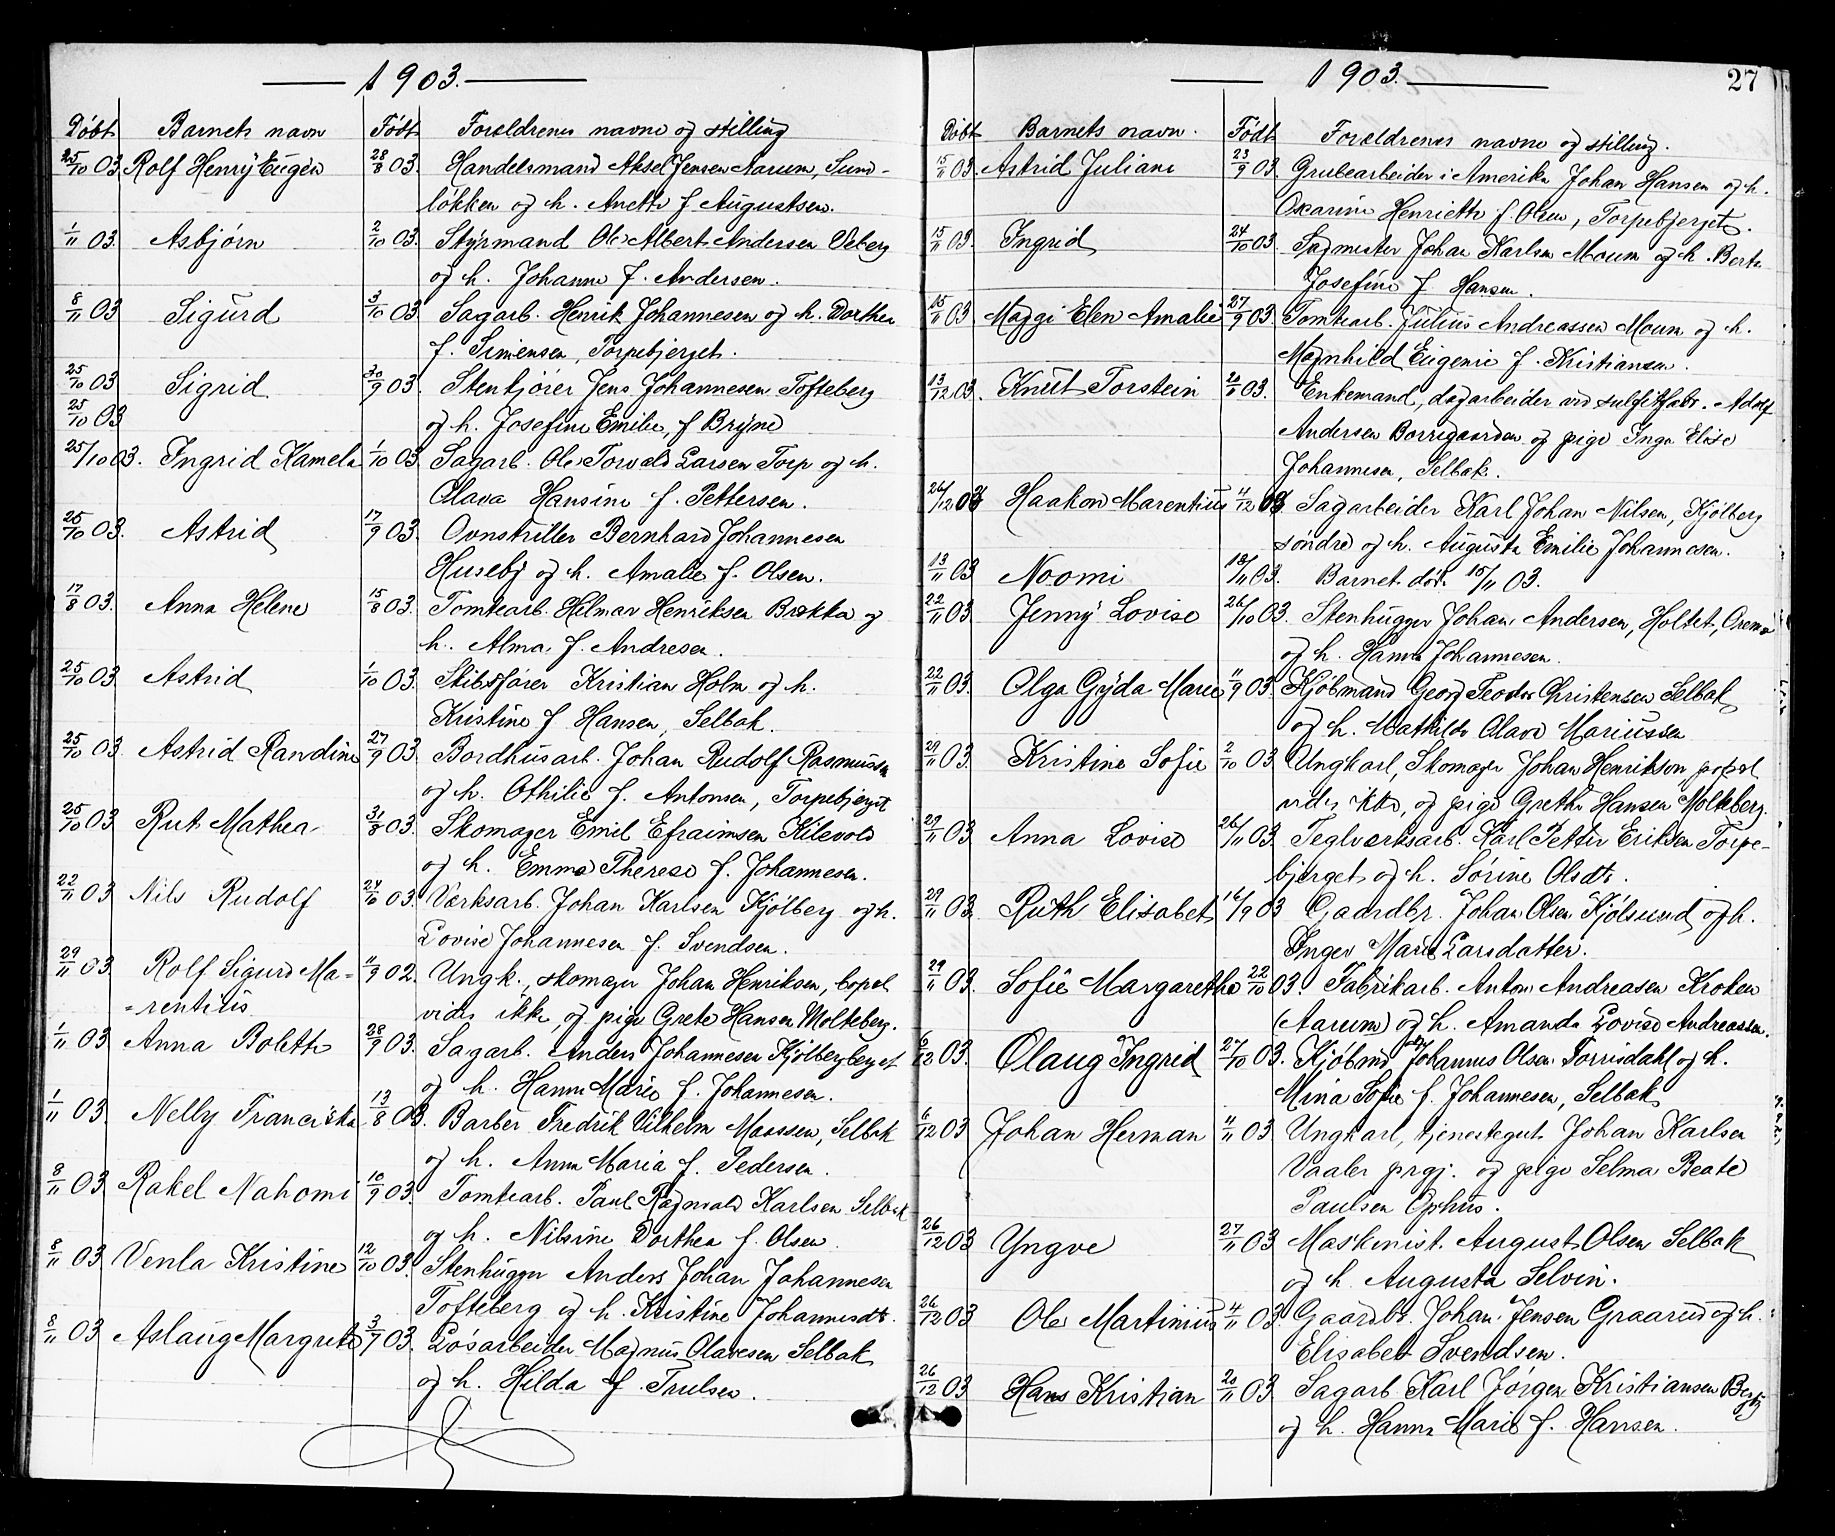 1903.
Døbt Barnets navn Født Foreldrenes navne og stilling
25/10 03 Rolf Henry Eugen 28/8 03. Handelsmand Aksel Jensen Aarum, Sund-
løkken og h. Anette f Augustsen.
1/11 03. Asbjørn 2/10 03. Styrmand Ole Albert Andersen Veberg
og h. Johanne f. Andersen.
8/11 03 Sigurd 3/10 03 Sagarb. Henrik Johannesen og h. Dorthea
f. Simensen, Torpebjerget.
25/10 03 Sigrid 20/9 03. Stenkjører Jens Johannesen Tofteberg
25/10 03 og h. Josefine Emilie, f Bryne
25/10 03. Ingrid Kamela 1/10 03. Sagarb. Ole Torvald Larsen Torp og h.
Olava Hansine f. Pettersen.
25/10 03. Astrid 17/9 03. Ovnstiller Bernhard Johannesen
Huseby og h. Amalie f. Olsen.
17/8 03. Anna Helene 15/8 03. Tomtearb. Hilmar Henriksen Brekka og
h. Alma f. Andresen.
25/10 03 Astrid 1/10 03. Skibsfører Kristian Holm og h.
Kristine f Hansen, Selbak.
25/10 03. Astrid Randine 27/9 03. Bordhusarb. Johan Rudolf Rasmussen
og h. Othilie f. Antonsen, Torpebjerget
25/10 03 Rut Mathea 31/8 03. Skomager Emil Efraimsen Kilevold
og h. Emma Therese f. Johannesen.
22/11 03 Nils Rudolf 24/10 03. Verksarb. Johan Karlsen Kjølberg og h.
Lovise Johannesen f. Svendsen.
29/11 03 Rolf Sigurd Ma= 11/9 02. Ungk., skomager Johan Henriksen, bopel
=rentius vides ikke, og pige Grete Hansen Molteberg.
1/11 03 Anna Bolette 28/9 03. Sagarb. Anders Johannesen Kjølbergberget
og h. Hanna Marie f. Johannesen.
1/11 03. Nelly Franciska 13/8 03. Barber Fredrik Vilhelm Maassen, Selbak
og h. Anna Maria f. Pedersen.
8/11 03 Rakel Nahomi 10/9 03. Tomtearb. Paul Ragnvald Karlsen Selbak
og h. Nilsine Dorthea f. Olsen.
8/11 03 Venla Kristine 12/10 03. Stenhugger Anders Johan Johannesen
Tofteberg og h. Kristine Johannesdt.
8/11 03 Aslaug Margrete 3/7 03. Løsarbeider Magnus Olavesen Selbak
og h. Hilda f. Trulsen.
1903. 27
Døbt Barnets navn. Født Foreldrenes navne og stilling.
15/11 03 Astrid Juliane 23/9 03. Grubearbeider i Amerika Johan Hansen og h.
Oscarine Henriette f. Olsen, Torpebjerget.
15/11 03 Ingrid 24/10 03. Sagmester Johan Karlsen Moum og h. Berte
Josefine f Hansen.
15/11 03 Maggi Elen Amalie 27/9 03. Tomtearb. Julius Andreassen Moum og h.
Magnhild Eugenie f. Kristiansen.
13/12 03. Knut Torstein 2/8 03. Enkemand, dagarbeider ved sulfitfabr. Adolf
Andersen Borregaarden og pige Inga Elise
Johannesen, Selbak.
26/12 03 Haakon Marentius 4/12 03 Sagarbeider Karl Johan Nilsen, Kjølberg
søndre og h. Augusta Emilie Johannesen.
13/11 03 Noomi 12/11 03. Barnet død 15/11 03.
22/11 03 Jenny Lovise 26/10 03. Stenhugger Johan Andersen, Holtet,
og h. Hanna Johannesen.
22/11 03. Olga Gyda Marie 11/9 03. Kjøbmand Georg Teodor Christensen Selbak
og h. Mathilde Olave Mariussen
29/11 03. Kristine Sofie 2/10 03 Ungkarl, Skomager Johan Henrikson
vides ikke, og pige Grethe Hansen Molteberg.
29/11 03 Anna Lovise 26/11 03. Teglverksarb. Karl Petter Eriksen Torpe-
bjerget og h. Sørine Olsdt.
29/11 03. Ruth Elisabet 16/9 03 Gaardbr. Johan Olsen Kjølsund og h.
Inger Marie Larsdatter.
29/11 03. Sofie Margarethe 22/10 03. Fabrikarb. Anton Andreasen Kroken
(Aarum) og h. Amanda Lovise Andreassen.
6/12 03. Olaug Ingrid 27/10 03. Kjøbmd Johannes Olsen Torrisdahl og h.
Mina Sofie f. Johannesen, Selbak
6/12 03 Johan Herman 4/11 03 Ungkarl, tjenestegut Johan Karlsen
Vaaler prgj. og pige Selma Beate
Paulsen Ophus.
26/12 03 Yngve 27/11 03 Maskinist August Olsen Selbak
og h. Augusta Selvin.
26/12 03 Ole Martinius 4/11 03. Gaardbr. Johan Jensen Graarud og h.
Elisabet Svendsen.
26/12 03 Hans Kristian 20/11 03 Sagarb. Karl Jørgen Kristiansen Bergby
og h. Hanna Marie f. Hansen.